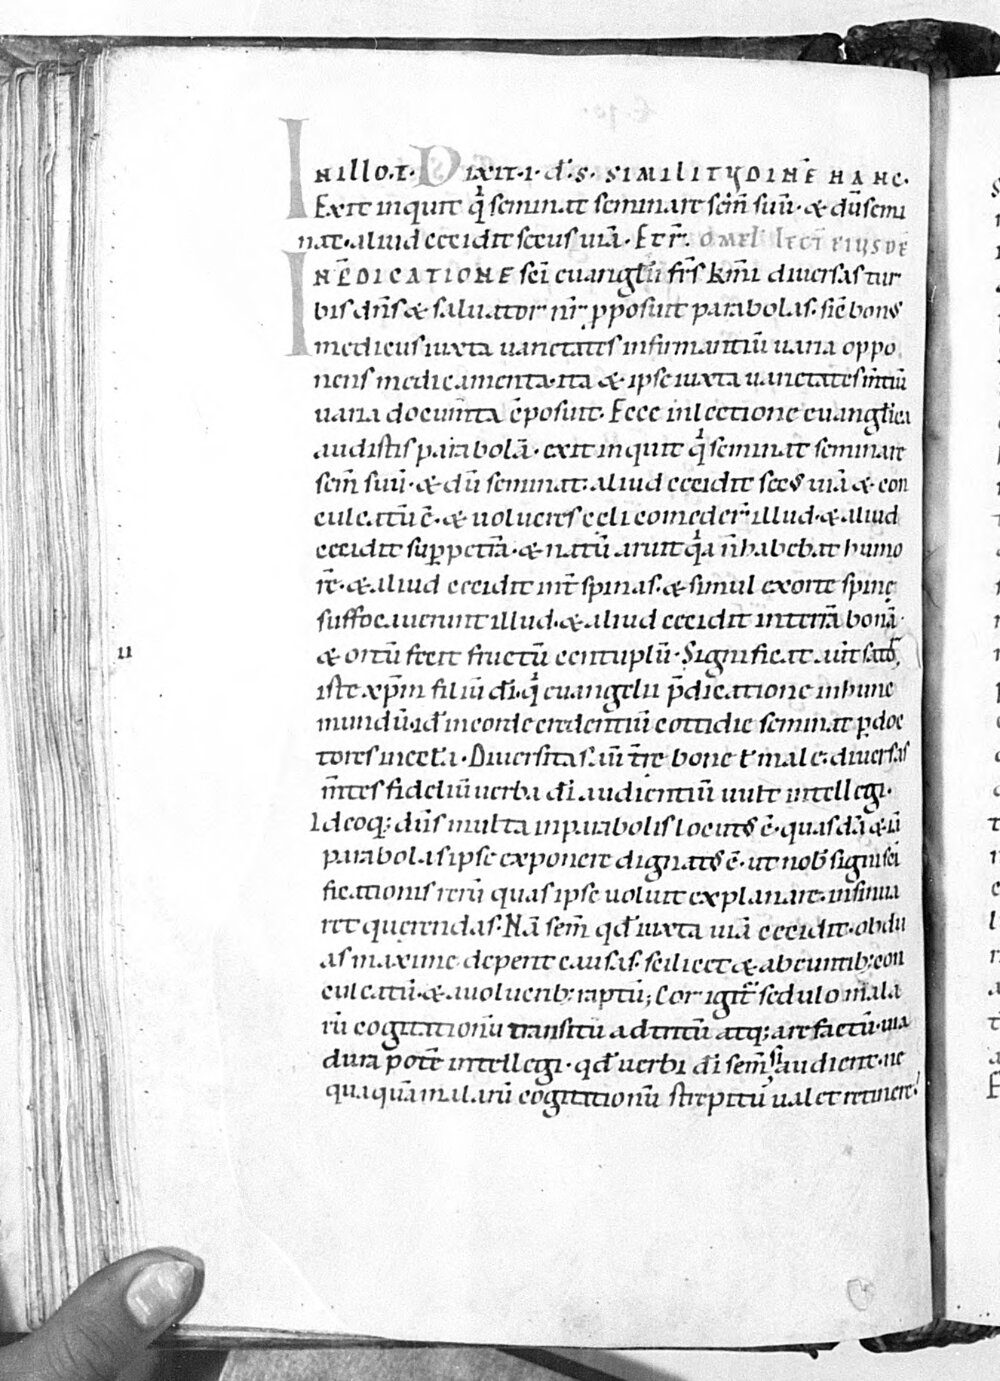 IN illo.t. Dixit.i.d̄.s. SIMILITUDINĒ HANC.
Exit inquit qͥ seminat seminare sem̄ suū. & dū semi
nat. aliud cecidit secus uiā. Et r̄. OMEL LECT̄ EIUSDĒ
IN P̄DICATIONE sc̄i euangelii fr̄s km̄i diuersas tur
bis dn̄s & saluator nr̄ p̄posuit parabolas. sic̄ bonꝰ
medicus iuxta uarietates infirmantiū uaria oppo
nens medicamenta. ita & ipse iuxta uarietates m̄tiū
uaria docum̄ta ēposuit. Ecce in lectione euangl̄ica
audistis parabolā. exit inquit qͥ seminat seminare
sem̄ suū. & dū seminat. aliud cecidit secꝰ uiā & con
culcatū ē. & uolucres celi comeder̄ illud. & aliud
cecidit suꝑ petrā. & natū aruit qͥa n̄ habebat humo
rē. & aliud cecidit int̄ spinas. & simul exorte spinę
suffocauerunt illud. & aliud cecidit in terrā bonā.
& ortū fecit fructū centuplū. Significat aut̄ satꝰ
iste xp̄m filiū dī. qͥ euangelii p̄dicatione in hunc
mundū. id̄ in corde credentiū cottidie seminat ꝑ doc
tores in ęccl̄a. Diuersitas aū tr̄e bone ł male. diuersas
m̄tes fideliū uerba dī audientiū uult intellegi.
Ideoq; dn̄s multa in parabolis locutꝰ ē. quasdā & iā
parabolas ipse exponere dignatꝰ ē. ut nob̄ signifi
ficationis rerū quas ipse uoluit explanare. insinua
ret querendas. Nā sem̄ qd̄ iuxta uiā cecidit. ob du
as maxime deperit causas. scilicet & abeuntib; con
culcatū. & a uolucrib; raptū; Cor igit̄ sedulo mala
rū cogitationū transitu adtritū atq; arefactū. uia
dura poterit intellegi. qd̄ uerbi dī sem̄ si audierit. ne
quaquā malarū cogitationū strepitū ualet retinere.